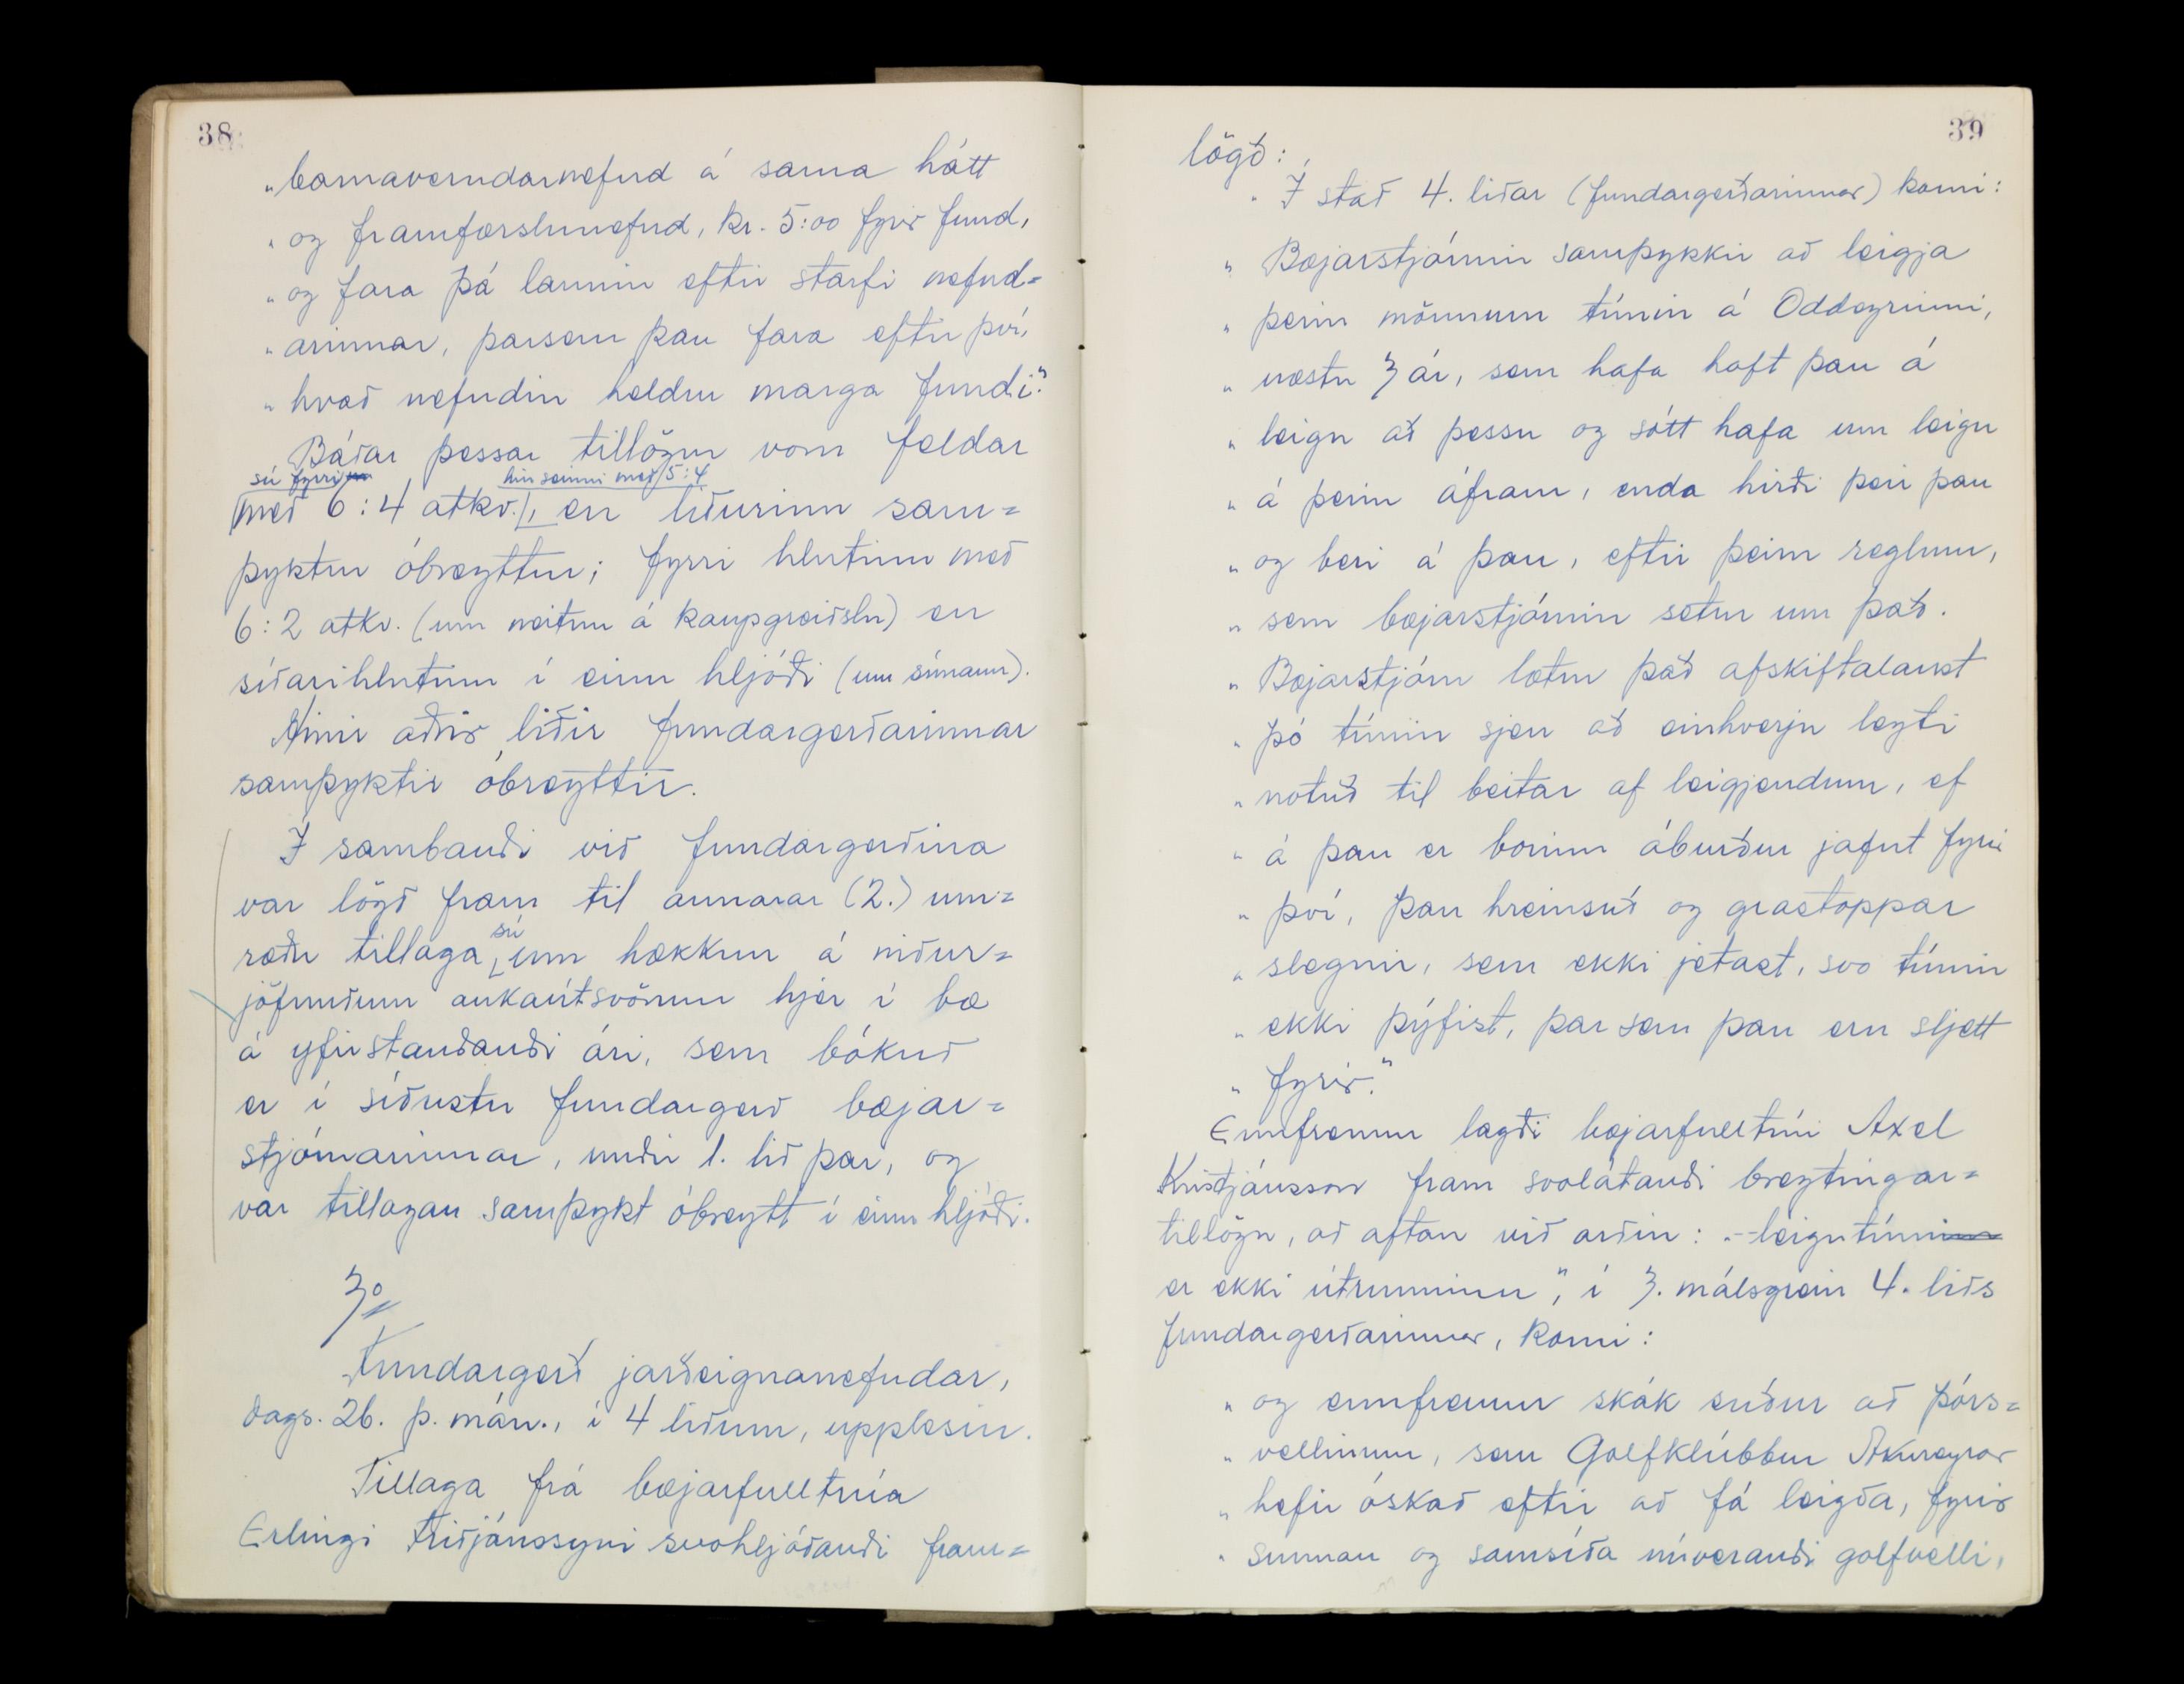 38
„barnaverndarnefnd á sama hátt
„og framfærslunefnd, kr. 5:00 fyrir fund,
„og fara þá launin eftir starfi nefnd=
„arinnar, þarsem þau fara eftir því,
„hvað nefndin heldur marga fundi."
Báðar þessar tillögur voru feldar
sú fyrri hin seinni með 5:4
með 6:4 atkv., en liðurinn sam=
þyktur óbreyttur; fyrri hlutinn með
6:2 atkv. (um neitun á kaupgreiðslu) en
síðarihlutinn í einu hljóði (um símann).
Aðrir liðir fundargerðarinnar
samþyktir óbreyttir.
Í sambandi við fundargerðina
var lögð fram til annarar (2.) um=
sú
ræðu tillaga, um hækkun á niður=
jöfnuðum aukaútsvörum hjer í bæ
á yfirstandandi ári, sem bókuð
er í síðustu fundargerð bæjar=
stjórnarinnar, undir 1. lið þar, og
var tillagan samþykt óbreytt í einu hljóði.
3o
Fundargerð jarðeignanefndar,
dags. 26. þ. mán., í 4 liðum, upplesin.
Tillaga frá bæjarfulltrúa
Erlingi Friðjónssyni svohljóðandi fram=
39
lögð:
„Í stað 4. liðar (fundargerðarinnar) komi:
„Bæjarstjórnin samþykkir að leigja
„þeim mönnum túnin á Oddeyrinni,
„næstu 3 ár, sem hafa haft þau á
„leigu að þessu og sótt hafa um leigu
„á þeim áfram, enda hirði þeir þau
„og beri á þau, eftir þeim reglum,
„sem bæjarstjórnin setur um það.
„Bæjarstjórn lætur það afskiftalaust
„þó túnin sjeu að einhverju leyti
„notuð til beitar af leigjendum, ef
„á þau er borinn áburður jafnt fyrir
„því, þau hreinsuð og grastoppar
„slegnir, sem ekki jetast, svo túnin
„ekki þýfist, þar sem þau eru sljett
„fyrir."
Ennfremur lagði bæjarfulltrúi Axel
Kristjánsson fram svolátandi breytingar=
tillögu, að aftan við orðin: „-leigutíminn
er ekki útrunninn", í 3. málsgrein 4. liðs
fundargerðarinnar, komi:
„og ennfremur skák suður að þórs=
„vellinum, sem Golfklúbbur Akureyrar
„hefir óskað eftir að fá leigða, fyrir
„sunnan og samsíða núverandi golfvelli,